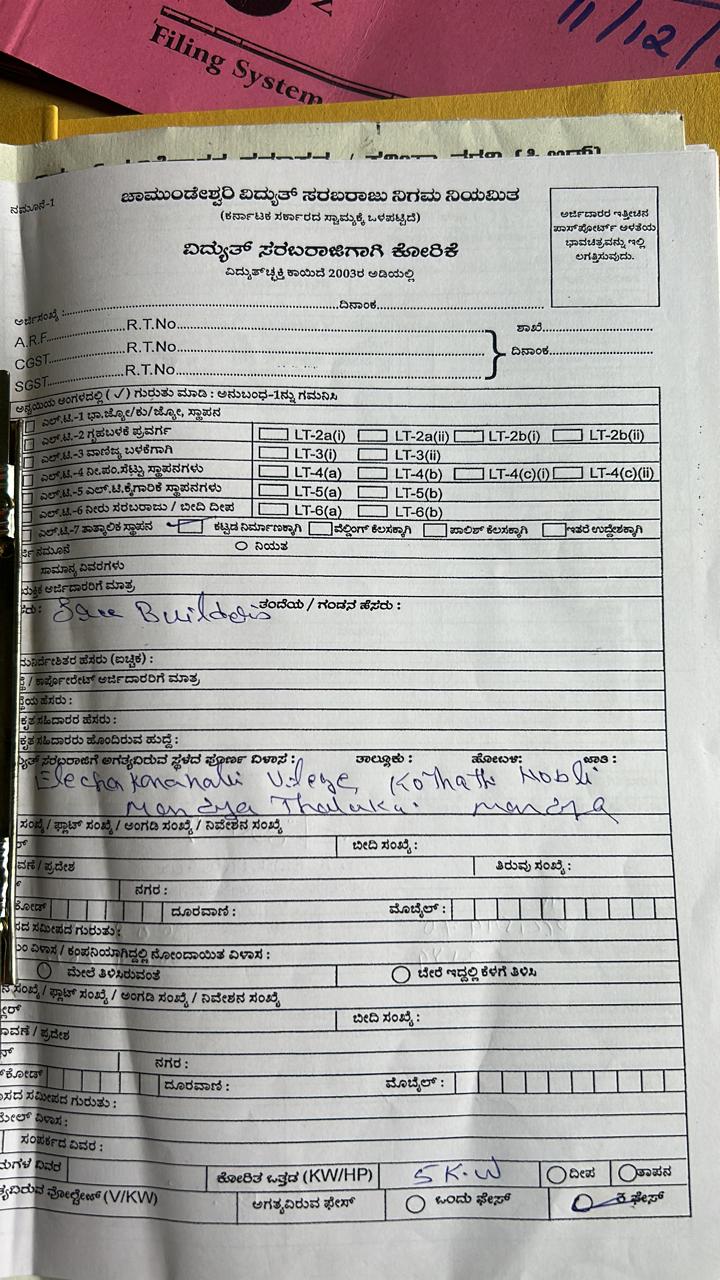 Filing System
11/12/
ನಮೂನೆ-1
ಚಾಮುಂಡೇಶ್ವರಿ ವಿದ್ಯುತ್ ಸರಬರಾಜು ನಿಗಮ ನಿಯಮಿತ
(ಕರ್ನಾಟಕ ಸರ್ಕಾರದ ಸ್ವಾಮ್ಯಕ್ಕೆ ಒಳಪಟ್ಟಿದೆ)
ವಿದ್ಯುತ್ ಸರಬರಾಜಿಗಾಗಿ ಕೋರಿಕೆ
ವಿದ್ಯುತ್‌ಚ್ಛಕ್ತಿ ಕಾಯಿದೆ 2003ರ ಅಡಿಯಲ್ಲಿ
ಅರ್ಜಿದಾರರ ಇತ್ತೀಚಿನ
ಪಾಸ್‌ಪೋರ್ಟ್ ಅಳತೆಯ
ಭಾವಚಿತ್ರವನ್ನು ಇಲ್ಲಿ
ಲಗತ್ತಿಸುವುದು.
ಅರ್ಜಿಸಂಖ್ಯೆ : ದಿನಾಂಕ
A.R.F. R.T.No. ಶಾಖೆ.
CGST. R.T.No. ದಿನಾಂಕ
SGST. R.T.No.
ಅನ್ವಯಿಯ ಅಂಗಳದಲ್ಲಿ (✓) ಗುರುತು ಮಾಡಿ : ಅನುಬಂಧ-1ನ್ನು ಗಮನಿಸಿ
ಎಲ್.ಟಿ.-1 ಭಾ.ಜ್ಯೋ/ಕು/ಜ್ಯೋ, ಸ್ಥಾಪನ
ಎಲ್.ಟಿ.-2 ಗೃಹಬಳಕೆ ಪ್ರವರ್ಗ LT-2a(i) LT-2a(ii) LT-2b(i) LT-2b(ii)
ಎಲ್.ಟಿ.-3 ವಾಣಿಜ್ಯ ಬಳಕೆಗಾಗಿ LT-3(i) LT-3(ii)
ಎಲ್.ಟಿ.-4 ನೀ.ಪಂ.ಸೆಟ್ಟು ಸ್ಥಾಪನಗಳು LT-4(a) LT-4(b) LT-4(c)(i) LT-4(c)(ii)
ಎಲ್.ಟಿ.-5 ಎಲ್.ಟಿ.ಕೈಗಾರಿಕೆ ಸ್ಥಾಪನಗಳು LT-5(a) LT-5(b)
ಎಲ್.ಟಿ.-6 ನೀರು ಸರಬರಾಜು / ಬೀದಿ ದೀಪ LT-6(a) LT-6(b)
ಎಲ್.ಟಿ.-7 ತಾತ್ಕಾಲಿಕ ಸ್ಥಾಪನ ಕಟ್ಟಡ ನಿರ್ಮಾಣಕ್ಕಾಗಿ ವೆಲ್ಡಿಂಗ್ ಕೆಲಸಕ್ಕಾಗಿ ಪಾಲಿಶ್ ಕೆಲಸಕ್ಕಾಗಿ ಇತರೆ ಉದ್ದೇಶಕ್ಕಾಗಿ
ನಮೂನೆ ನಿಯತ
ಸಾಮಾನ್ಯ ವಿವರಗಳು
ಅರ್ಜಿದಾರರಿಗೆ ಮಾತ್ರ
Builders ತಂದೆಯ / ಗಂಡನ ಹೆಸರು :
ಹೆಸರು (ಐಚ್ಛಿಕ) :
/ ಕಾರ್ಪೋರೇಟ್ ಅರ್ಜಿದಾರರಿಗೆ ಮಾತ್ರ
ಹೆಸರು :
ಸಹಿದಾರರ ಹೆಸರು :
ಸಹಿದಾರರು ಹೊಂದಿರುವ ಹುದ್ದೆ :
ಸರಬರಾಜಿಗೆ ಅಗತ್ಯವಿರುವ ಸ್ಥಳದ ಪೂರ್ಣ ವಿಳಾಸ : ತಾಲ್ಲೂಕು : ಹೋಬಳಿ: ಜಾತಿ :
Kothathi Hobli
Mandya Thaluku. Mandya
ಸಂಖ್ಯೆ / ಫ್ಲಾಟ್ ಸಂಖ್ಯೆ / ಅಂಗಡಿ ಸಂಖ್ಯೆ / ನಿವೇಶನ ಸಂಖ್ಯೆ
ಬೀದಿ ಸಂಖ್ಯೆ :
/ ಪ್ರದೇಶ ತಿರುವು ಸಂಖ್ಯೆ :
ನಗರ :
ಕೋಡ್ ದೂರವಾಣಿ : ಮೊಬೈಲ್ :
ಸಮೀಪದ ಗುರುತು :
ವಿಳಾಸ / ಕಂಪನಿಯಾಗಿದ್ದಲ್ಲಿ ನೋಂದಾಯಿತ ವಿಳಾಸ :
ಮೇಲೆ ತಿಳಿಸಿರುವಂತೆ ಬೇರೆ ಇದ್ದಲ್ಲಿ ಕೆಳಗೆ ತಿಳಿಸಿ
ಸಂಖ್ಯೆ / ಫ್ಲಾಟ್ ಸಂಖ್ಯೆ / ಅಂಗಡಿ ಸಂಖ್ಯೆ / ನಿವೇಶನ ಸಂಖ್ಯೆ
ಬೀದಿ ಸಂಖ್ಯೆ :
/ ಪ್ರದೇಶ
ನಗರ :
ಕೋಡ್ ದೂರವಾಣಿ : ಮೊಬೈಲ್ :
ಸಮೀಪದ ಗುರುತು :
ವಿಳಾಸ :
ಸಂಪರ್ಕದ ವಿವರ :
ವಿವರ ಕೋರಿತ ಒತ್ತಡ (KW/HP) 5 K.W ದೀಪ ತಾಪನ
ವೋಲ್ಟೇಜ್ (V/KW) ಅಗತ್ಯವಿರುವ ಫೇಸ್ ಒಂದು ಫೇಸ್ ಫೇಸ್